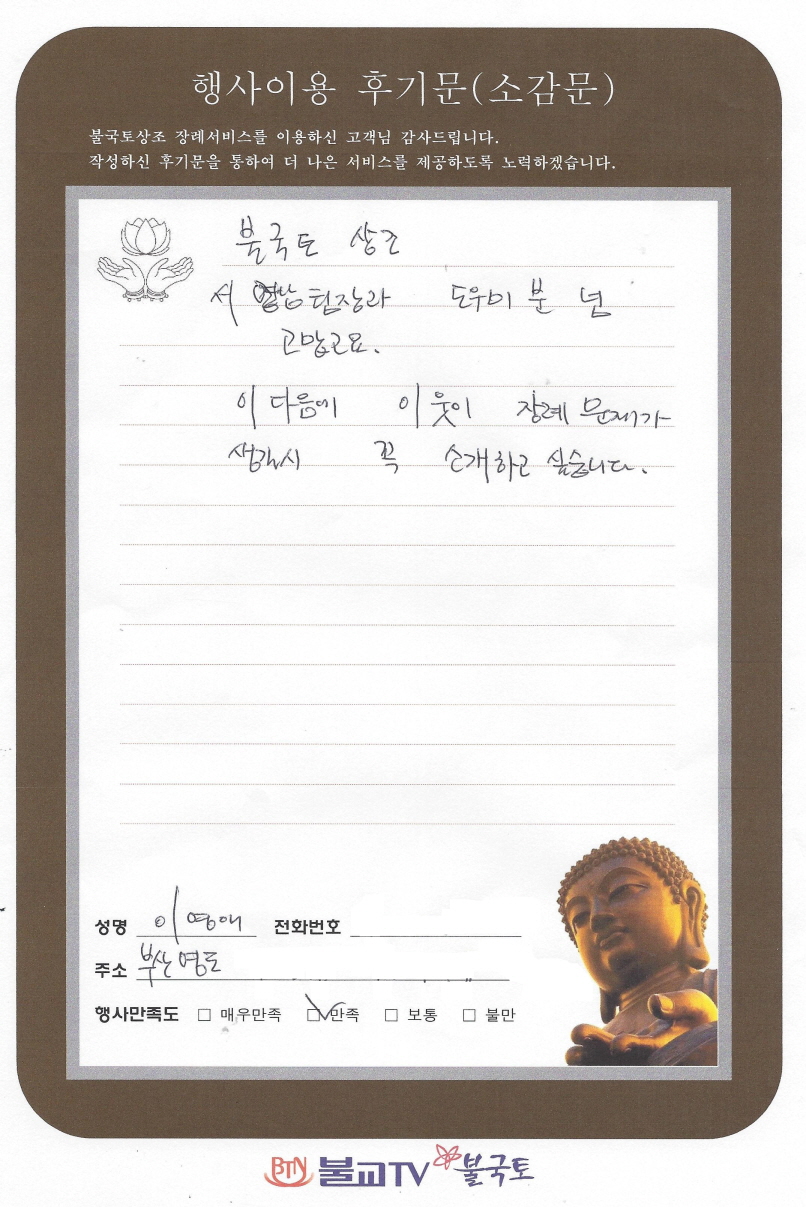 행사이용 후기문(소감문)
불국토상조 장례서비스를 이용하신 고객님 감사드립니다.
작성하신 후기문을 통하여 더 나은 서비스를 제공하도록 노력하겠습니다.
불국토 상조
서 팀장과 도우미 분 넘
고맙고요.
이 다음에 이웃이 장례 문제가
생길시 꼭 소개하고 싶습니다.
성명 이영애 전화번호
주소 부산 영도
행사만족도 □ 매우만족 □ 만족 □ 보통 □ 불만
BTN 불교TV 불국토